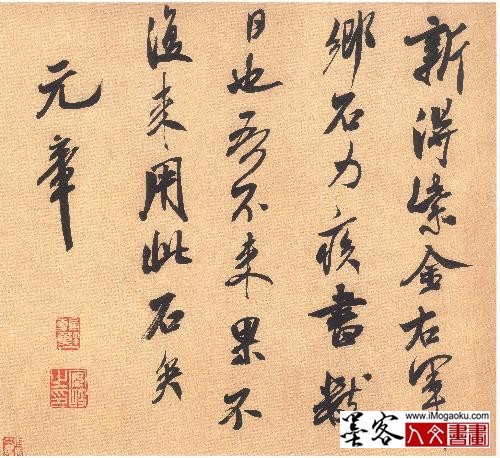 新得紫金右軍
鄉石力疾書數
日也吾不来果不
復来用此石矣
元章
www.iMogaoku.com
墨客人文書畫